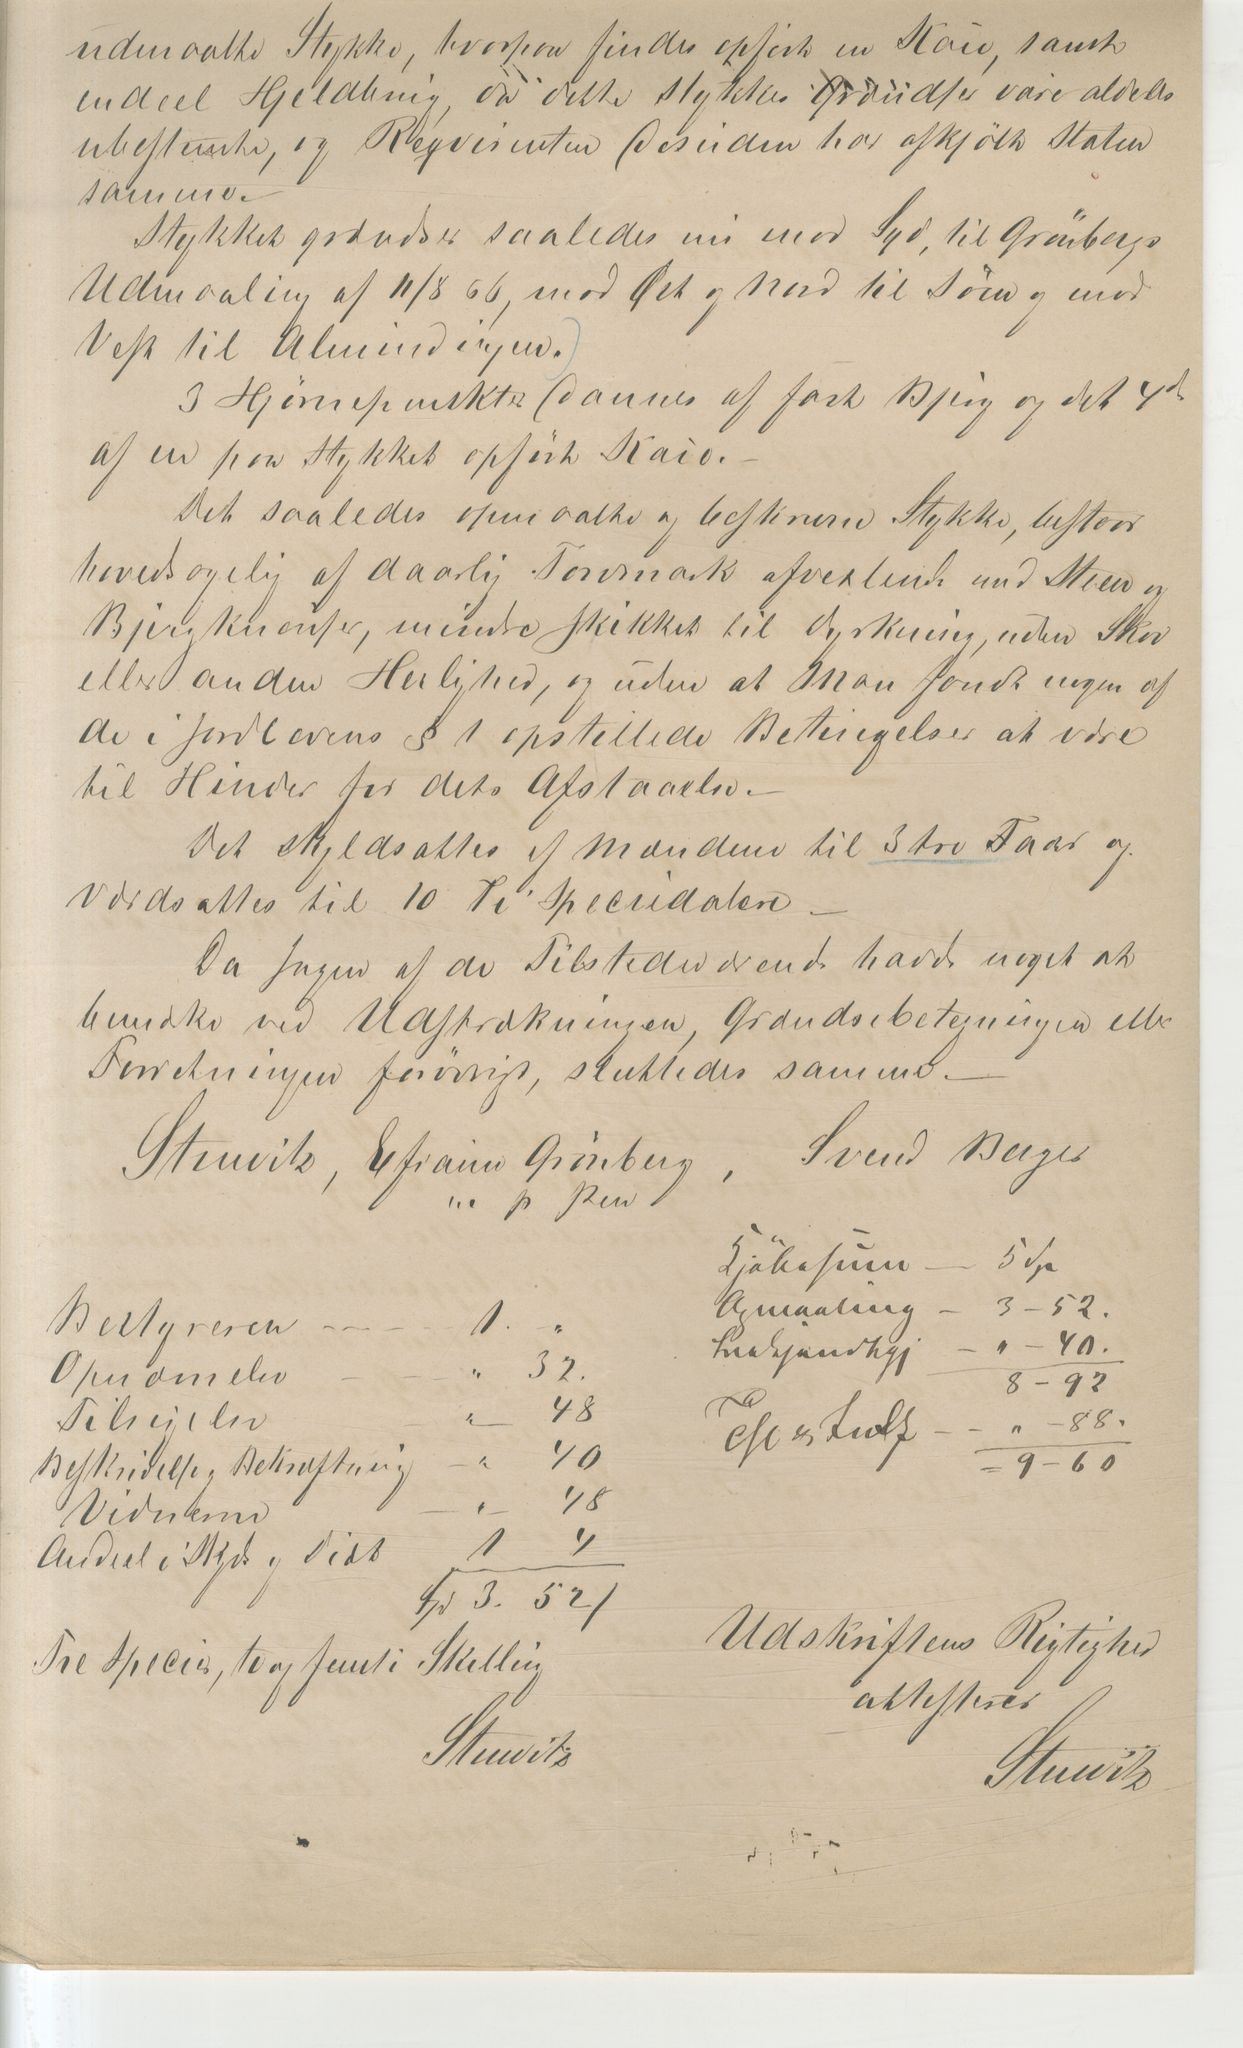 udmaalte Stykke, hvorpaa findes opført en Kaie, samt
endeel Hjeldbrug, da dette Stykkes Grændser vare aldeles
ubestemte, og Reqvirenten desuden har afkjøbt Staten
samme.
Stykket grændser saaledes nu mod Syd, til Grönbergs
Udmaaling af 11/8 66, mod Øst og Nord til Söen og mod
Vest til Almindingen.)
3 Hjørnepunkter dannes af fast Bjerg og det 4de
af en paa Stykket opført Kaie. -
Det saaledes opmaalte og beskrevne Stykke, bestaar
hovedsagelig af daarlig Torvmark afvexlende med Steen og
Bjergknauser, mindre skikket til Dyrkning, uden Skov
eller anden Herlighed, og uden at Man fandt nogen af
de i Jordlovens § 1 opstillede Betingelser at være
til Hinder for dets Afstaaelse. -
Det skyldsattes af Mændene til 3 tre Faar og
værdsattes til 10 Ti Speciedalere -
Da Ingen af de Tilstedeværende havde noget at
bemærke ved Udstrækningen, Grændsebetegningen eller
Forretningen forövrigt, sluttedes samme. -
Stuwitz, Efraim Grönberg, Svend Berger
m p Pen
Kjöbesum - 5 Sp
Opmaaling - 3 - 52.
- " - 40.
8 - 92
- - " - 88.
= 9 - 60
Bestyreren - - - 1. "
Opnævnelse - - " 32.
Tilsigelse " 48
Beskrivelse og Bekræftning - " 40
Vidnerne - " - 48
Andeel i Skyds og Diæt 1 4
Spd 3. 52/
Tre Species, to og femti Skilling
Stuwitz
Udskriftens Rigtighed
attesterer
Stuwitz